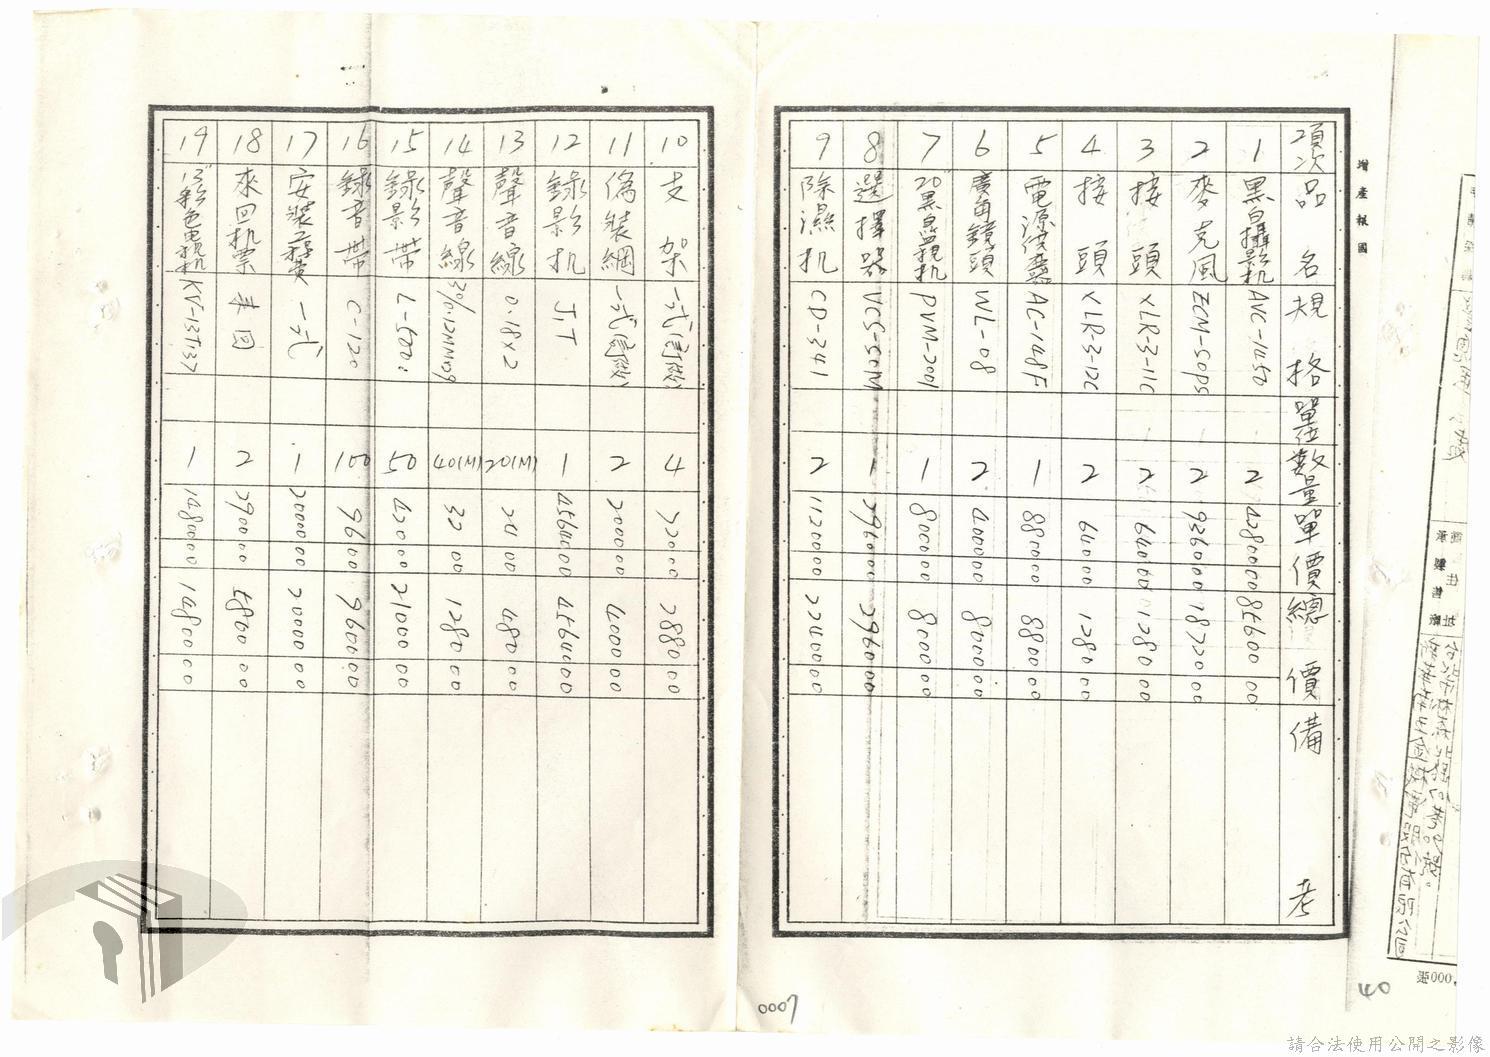 增產報國
項次 品名 規格 單位 數量 單價 總價 備考
1 黑白攝影机 AVC-1450 2 4280000 8560000
2 麥克風 ECM-50PS 2 936000 1872000
3 接頭 XLR-3-11C 2 64000 128000
4 接頭 XLR-3-12C 2 64000 128000
5 電源 AC-148F 1 880000 880000
6 廣角鏡頭 WL-08 2 400000 800000
7 20"黑白電視机 PVM-2001 1 800000 800000
8 選擇器 VCS-50M 1 296000 296000
9 除濕机 CD-341 2 1120000 2240000
10 支架 一式 4 72000 288000
11 偽裝網 一式 2 200000 400000
12 錄影机 J.T 1 4564000 4564000
13 聲音線 0.18X2 20(M) 2400 48000
14 聲音線 40(M) 3200 128000
15 錄影帶 L-500 50 42000 2100000
16 錄音帶 C-120 100 9600 960000
17 安裝工程費 一式 1 2000000 2000000
18 來回机票 來回 2 290000 580000
19 13"彩色電視机 KV-13T137 1 1480000 1480000
0007
40
請合法使用公開之影像